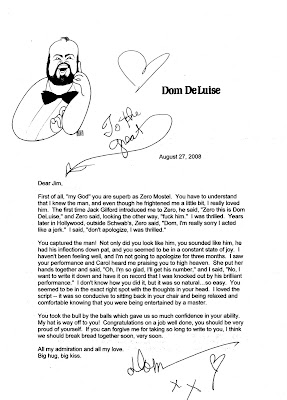 Dom DeLuise
To the
great
August 27, 2008
Dear Jim,
First of all, "my God" you are superb as Zero Mostel. You have to understand
that I knew the man, and even though he frightened me a little bit, I really loved
him. The first time Jack Gilford introduced me to Zero, he said, "Zero this is Dom
DeLuise," and Zero said, looking the other way, "fuck him." I was thrilled. Years
later in Hollywood, outside Schwab's, Zero said, "Dom, I'm really sorry I acted
like a jerk." I said, "don't apologize, I was thrilled."
You captured the man! Not only did you look like him, you sounded like him, he
had his inflections down pat, and you seemed to be in a constant state of joy. I
haven't been feeling well, and I'm not going to apologize for three months. I saw
your performance and Carol heard me praising you to high heaven. She put her
hands together and said, "Oh, I'm so glad, I'll get his number," and I said, "No, I
want to write it down and have it on record that I was knocked out by his brilliant
performance." I don't know how you did it, but it was so natural...so easy. You
seemed to be in the exact right spot with the thoughts in your head. I loved the
script -- it was so conducive to sitting back in your chair and being relaxed and
comfortable knowing that you were being entertained by a master.
You took the bull by the balls which gave us so much confidence in your ability.
My hat is way off to you! Congratulations on a job well done, you should be very
proud of yourself. If you can forgive me for taking so long to write to you, I think
we should break bread together soon, very soon.
All my admiration and all my love.
Big hug, big kiss.
Dom
x x